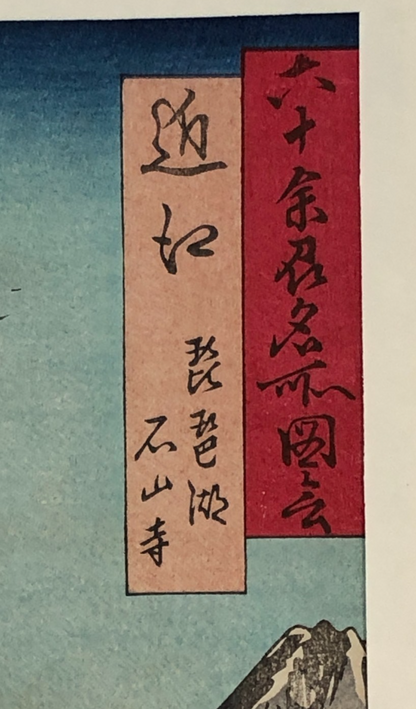 六十余州名所圖会
近江
琵琶湖
石山寺